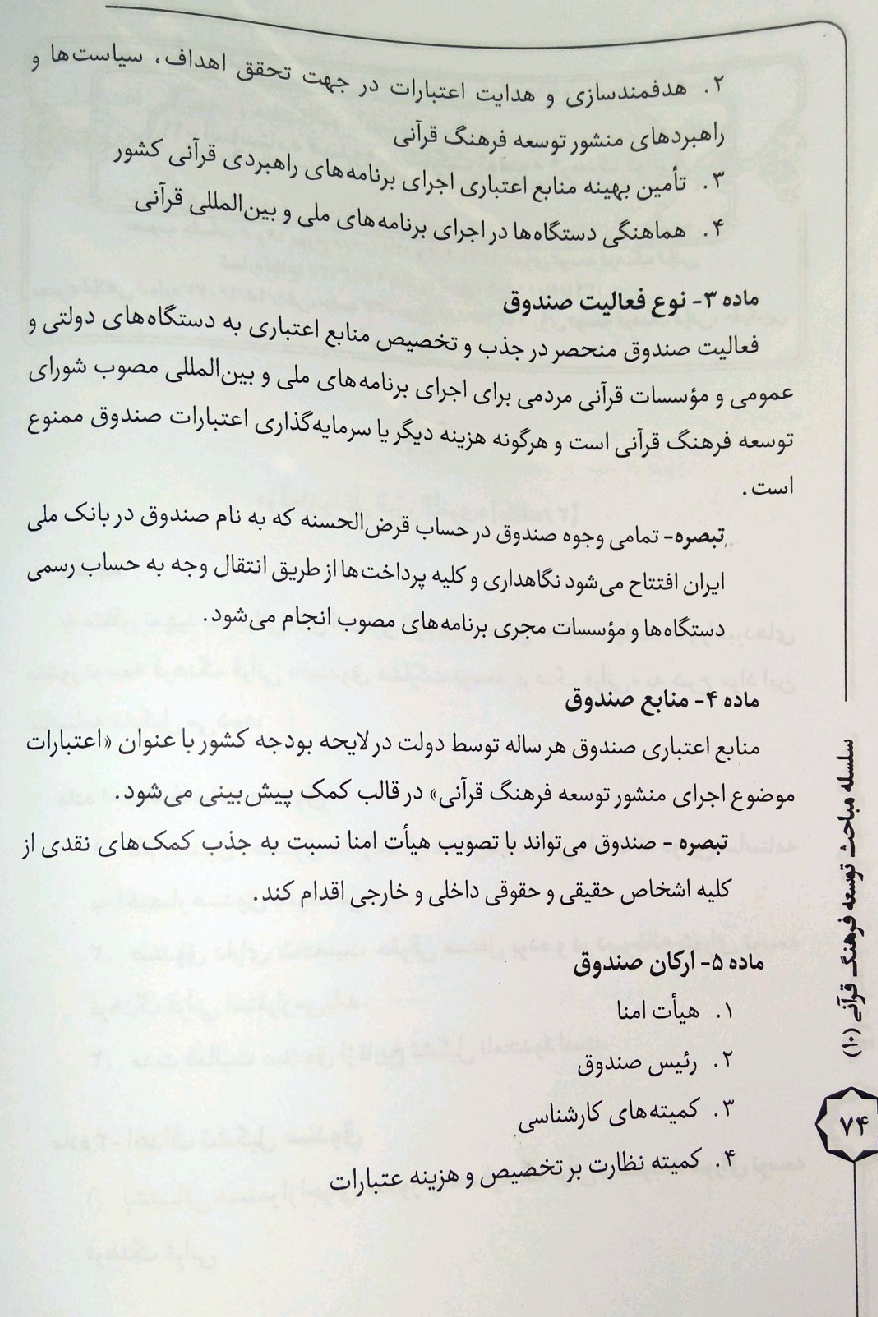 ۲. هدفمندسازی و هدایت اعتبارات در جهت تحقق اهداف، سیاست‌ها و
راهبردهای منشور توسعه فرهنگ قرآنی
۳. تأمین بهینه منابع اعتباری اجرای برنامه‌های راهبردی قرآنی کشور
۴. هماهنگی دستگاه‌ها در اجرای برنامه‌های ملی و بین‌المللی قرآنی
ماده ۳- نوع فعالیت صندوق
فعالیت صندوق منحصر در جذب و تخصیص منابع اعتباری به دستگاه‌های دولتی و
عمومی و مؤسسات قرآنی مردمی برای اجرای برنامه‌های ملی و بین‌المللی مصوب شورای
توسعه فرهنگ قرآنی است و هرگونه هزینه دیگر یا سرمایه‌گذاری اعتبارات صندوق ممنوع
است.
تبصره- تمامی وجوه صندوق در حساب قرض‌الحسنه که به نام صندوق در بانک ملی
ایران افتتاح می‌شود نگاهداری و کلیه پرداخت‌ها از طریق انتقال وجه به حساب رسمی
دستگاه‌ها و مؤسسات مجری برنامه‌های مصوب انجام می‌شود.
ماده ۴- منابع صندوق
منابع اعتباری صندوق هر ساله توسط دولت در لایحه بودجه کشور با عنوان «اعتبارات
موضوع اجرای منشور توسعه فرهنگ قرآنی» در قالب کمک پیش‌بینی می‌شود.
تبصره - صندوق می‌تواند با تصویب هیأت امنا نسبت به جذب کمک‌های نقدی از
کلیه اشخاص حقیقی و حقوقی داخلی و خارجی اقدام کند.
ماده ۵- ارکان صندوق
۱. هیأت امنا
۲. رئیس صندوق
۳. کمیته‌های کارشناسی
۴. کمیته نظارت بر تخصیص و هزینه عتبارات
سلسله مباحث توسعه فرهنگ قرآنی (۱۰)
۷۴